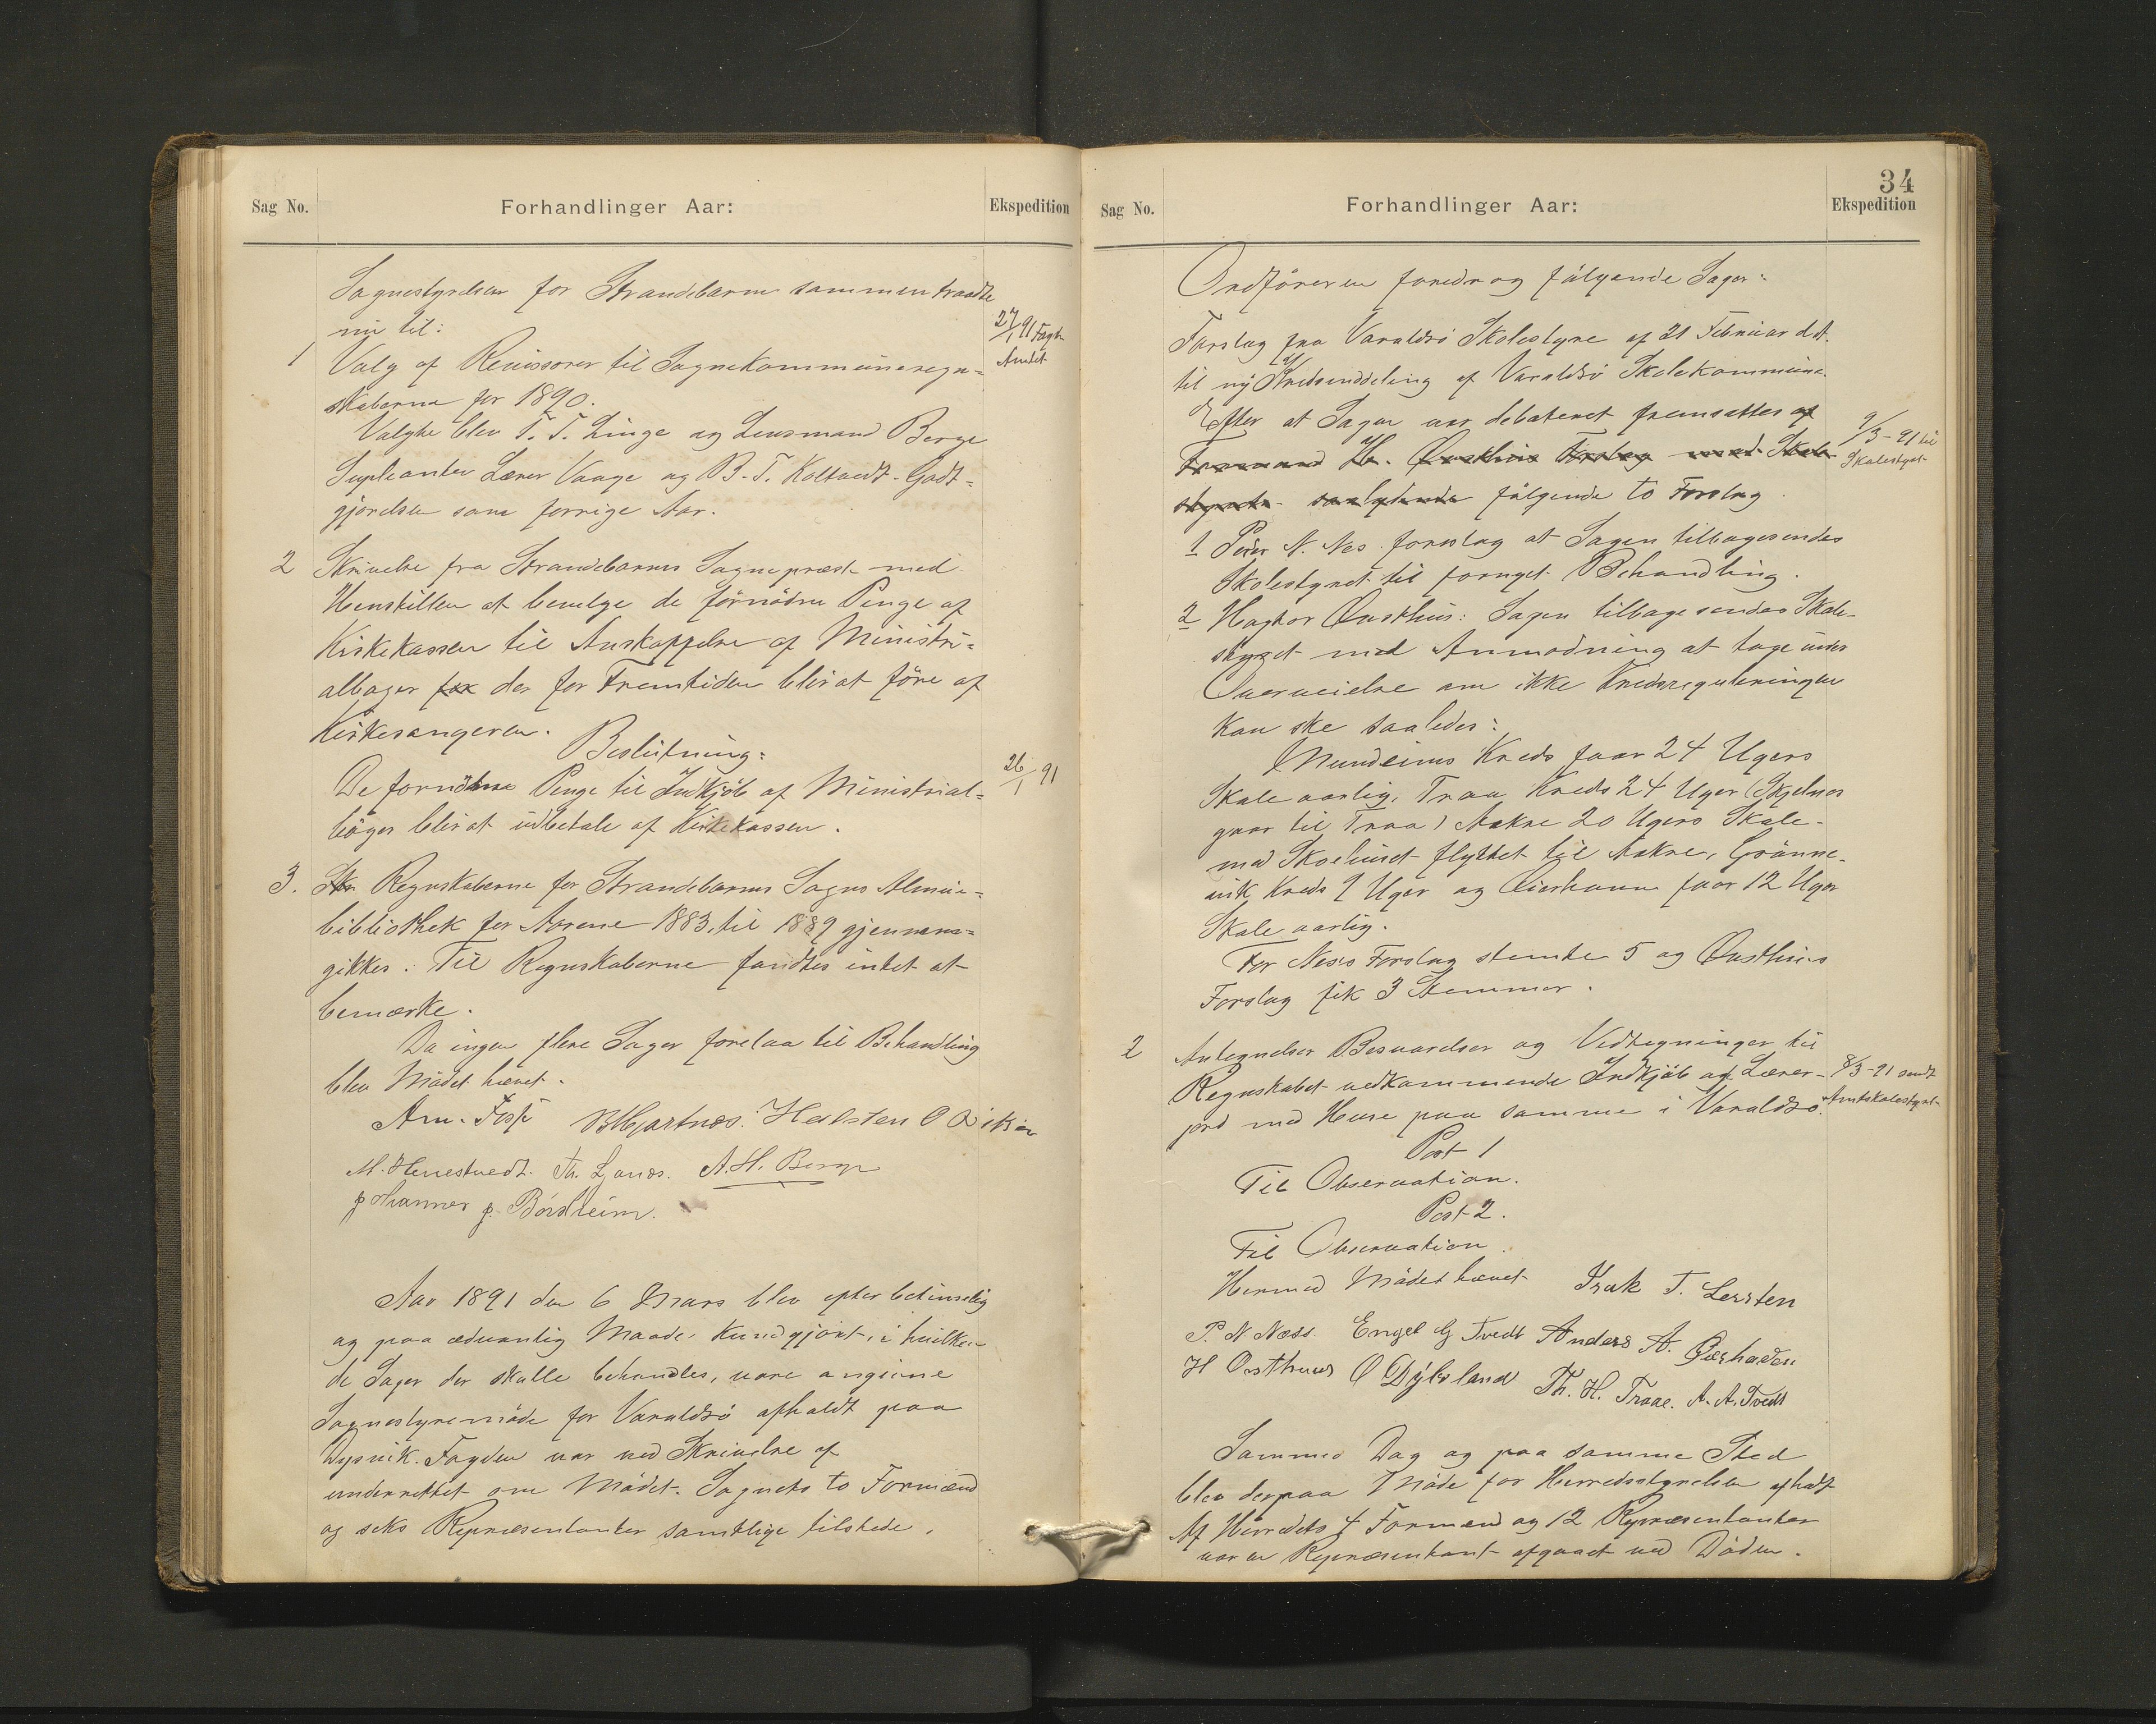 Sag No.
Forhandlinger Aar:
Ekspedition
Sognestyrelsen for Strandebarm sammentraadte
nu til:
27/1 91 Fogd
Amtet
1 Valg af Revissorer til Sognekommuneregn-
skaberne for 1890.
Valgte blev T. T. Linge og Lensmand Berge
Supleanter Lærer Vaage og B. T. Koltvedt. Godt-
gjørelsen som forrige Aar.
2 Skrivelse fra Strandebarms Sognepræst med
Henstillen at bevilge de fornødne Penge af
Kirkekassen til Anskaffelse af Ministri-
alboger for der for Fremtiden blir at føre af
Kirkesangeren.
Beslutning:
De fornødne Penge til Indkjøb af Ministrial-
bøger blir at udbetale af Kirkekassen.
26/1 91
3. Skr Regnskaberne for Strandebarms Sogns Almue-
bibliothek for Aarene 1883 til 1889 gjennem-
gikkes. Til Regnskaberne fandtes intet at
bemærke.
Da ingen flere Sager forelaa til Behandling
blev Mødet hævet.
Arn. Foss BHjartnæs. Halsten O
M. Henestvedt. Th. Ljones. A. H. Berge
Johannes J. Børsheim.
Aar 1891 den 6 Mars blev efter betimelig
og paa sedvanlig Maade kundgjort, i hvilken
de Sager der skulle behandles, vare angivne
Sognestyremøde for Varaldsø afholdt paa
Dysvik. Fogden var ved Skrivelse af
underrettet om Mødet. Sognets to Formænd
og seks Repræsentanter samtlige tilstede.
34
Sag No.
Forhandlinger Aar:
Ekspedition
Ordføreren foredrog følgende Sager:
Forslag fra Varaldsø Skolestyre af 21 Februar d.A.
til ny Kredsinddeling af Varaldsø Skolekommune.
Efter at Sagen var debateret fremsattes af
9/3-91 til
Skolestyret
Formand H. Qvsthus Forslag med Skole
styrets saalydende følgende to Forslag
1 Peder N. Nes foreslog at Sagen tilbagesendes
Skolestyret til fornyet Behandling.
2 Hagtor Qusthus: Sagen tilbagesendes Skole-
styret med Anmodning at tage under
Overveielse om ikke Kredsreguleringen
kan ske saaledes:
Mundeims Kreds faar 24 Ugers
Skole aarlig, Traa Kreds 24 Uger (Skjelnes
gaar til Traa) Aakre 20 Ugers Skole
med Skolehuset flyttet til Aakre, Grønne-
vik Kreds 9 Uger og Øierhavn faar 12 Uger
Skole aarlig.
For Neses Forslag stemte 5 og Qusthus
Forslag fik 3 Stemmer.
2 Antegnelser Besvarelser og Vedtegninger til
Regnskabet vedkommende Indkjøb af Lærer-
jord med Huse paa samme i Varaldsø.
8/3-91 sendt
Amtskolestyret
Post 1
Til Observation.
Post 2.
Til Observation.
Hermed Mødet hævet Isak T. Lessten
P. N Næss. Engel G Tvedt Anders A. Øierhavn
H Qusthus O Dysland Th. H. Traae. A. A. Tvedt
Samme Dag og paa samme Sted
blev derpaa Møde for Herredsstyrelsen afholdt
Af Herredets 4 Formænd og 12 Repræsentanter
var en Repræsentant afgaaet ved Døden.